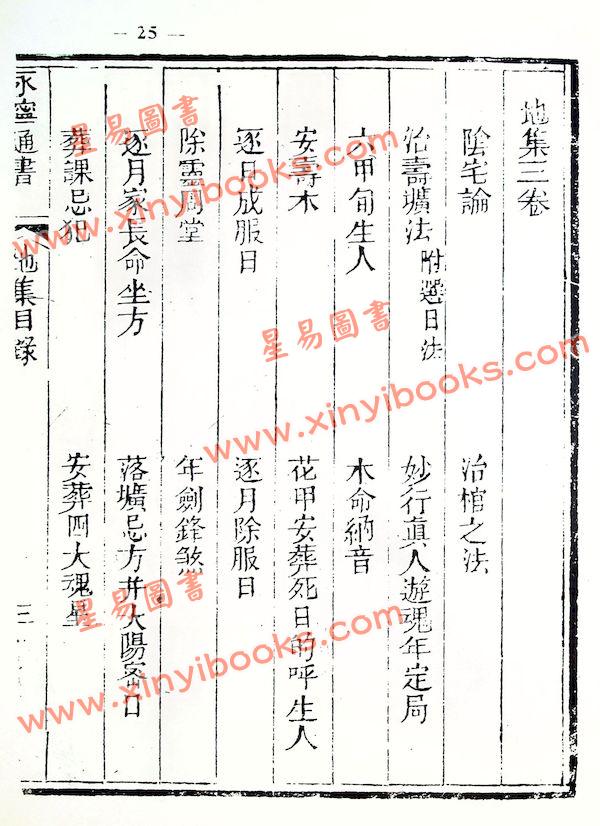 — 25 —
地集三卷
陰宅論 治棺之法
治壽壙法 附選日法 妙行真人遊魂年定局
六甲旬生人 木命納音
安壽木 花甲安葬死日的呼生人
逐日成服日 逐月除服日
除靈周堂 年劍鋒煞
逐月家長命坐方 落壙忌方并太陽密日
葬課忌犯 安葬四大魂星
永寧通書 地集目錄 三
星易圖書
www.xinyibooks.com
星易圖書
www.xinyibooks.com
星易圖書
www.xinyibooks.com